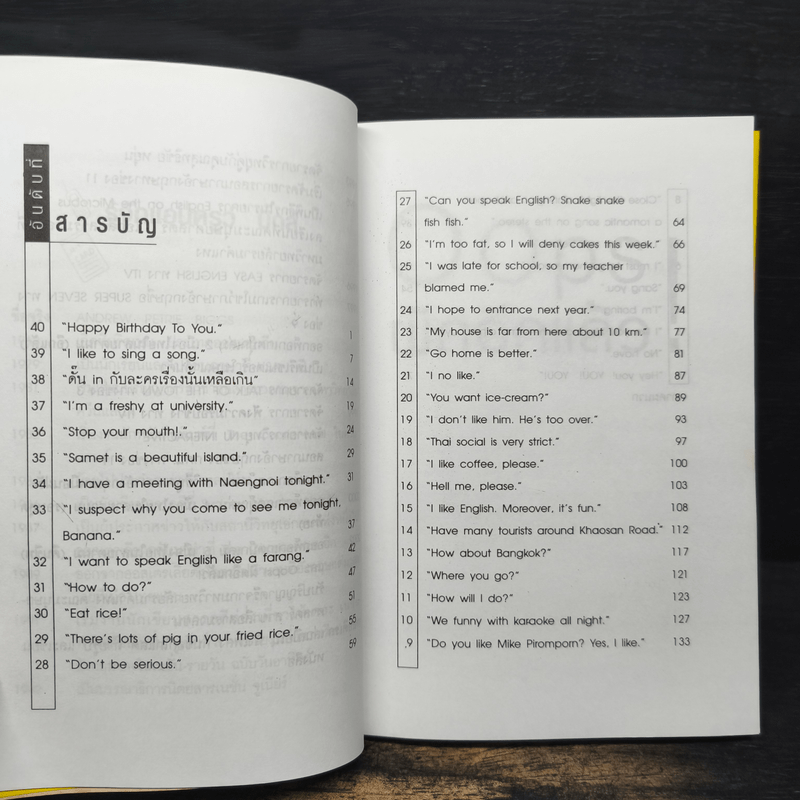 อันดับที่
สารบัญ
40 "Happy Birthday To You." 1
39 "I like to sing a song." 7
38 "ดั๊น in กับละครเรื่องนั้นเหลือเกิน" 14
37 "I'm a freshy at university." 19
36 "Stop your mouth!." 24
35 "Samet is a beautiful island." 29
34 "I have a meeting with Naengnoi tonight." 31
33 "I suspect why you come to see me tonight,
Banana." 37
32 "I want to speak English like a farang." 42
31 "How to do?" 47
30 "Eat rice!" 51
29 "There's lots of pig in your fried rice." 55
28 "Don't be serious." 59
27 "Can you speak English? Snake snake
fish fish." 64
26 "I'm too fat, so I will deny cakes this week." 66
25 "I was late for school, so my teacher
blamed me." 69
24 "I hope to entrance next year." 74
23 "My house is far from here about 10 km." 77
22 "Go home is better." 81
21 "I no like." 87
20 "You want ice-cream?" 89
19 "I don't like him. He's too over." 93
18 "Thai social is very strict." 97
17 "I like coffee, please." 100
16 "Hell me, please." 103
15 "I like English. Moreover, it's fun." 108
14 "Have many tourists around Khaosan Road." 112
13 "How about Bangkok?" 117
12 "Where you go?" 121
11 "How will I do?" 123
10 "We funny with karaoke all night." 127
9 "Do you like Mike Piromporn? Yes, I like." 133